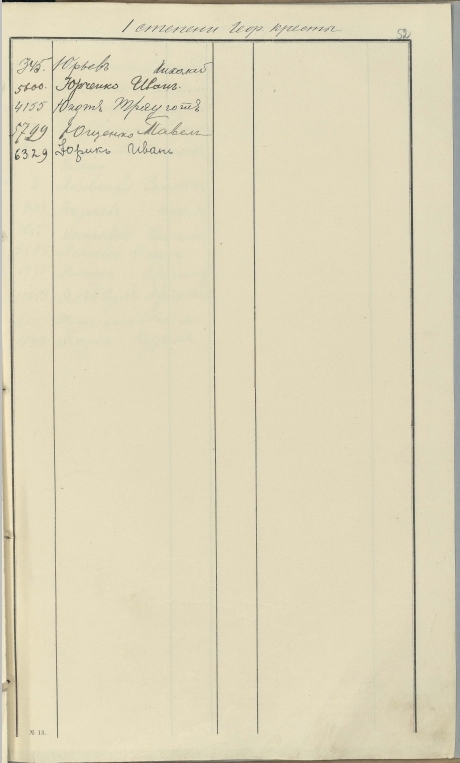 1 степени Геор. кресты
52
345. Юрьевъ
5600. Юрченко Иванъ.
4155 Юндтъ Трауготъ
5799 Ющенко Павелъ
6329 Юрикъ Иванъ
№ 13.